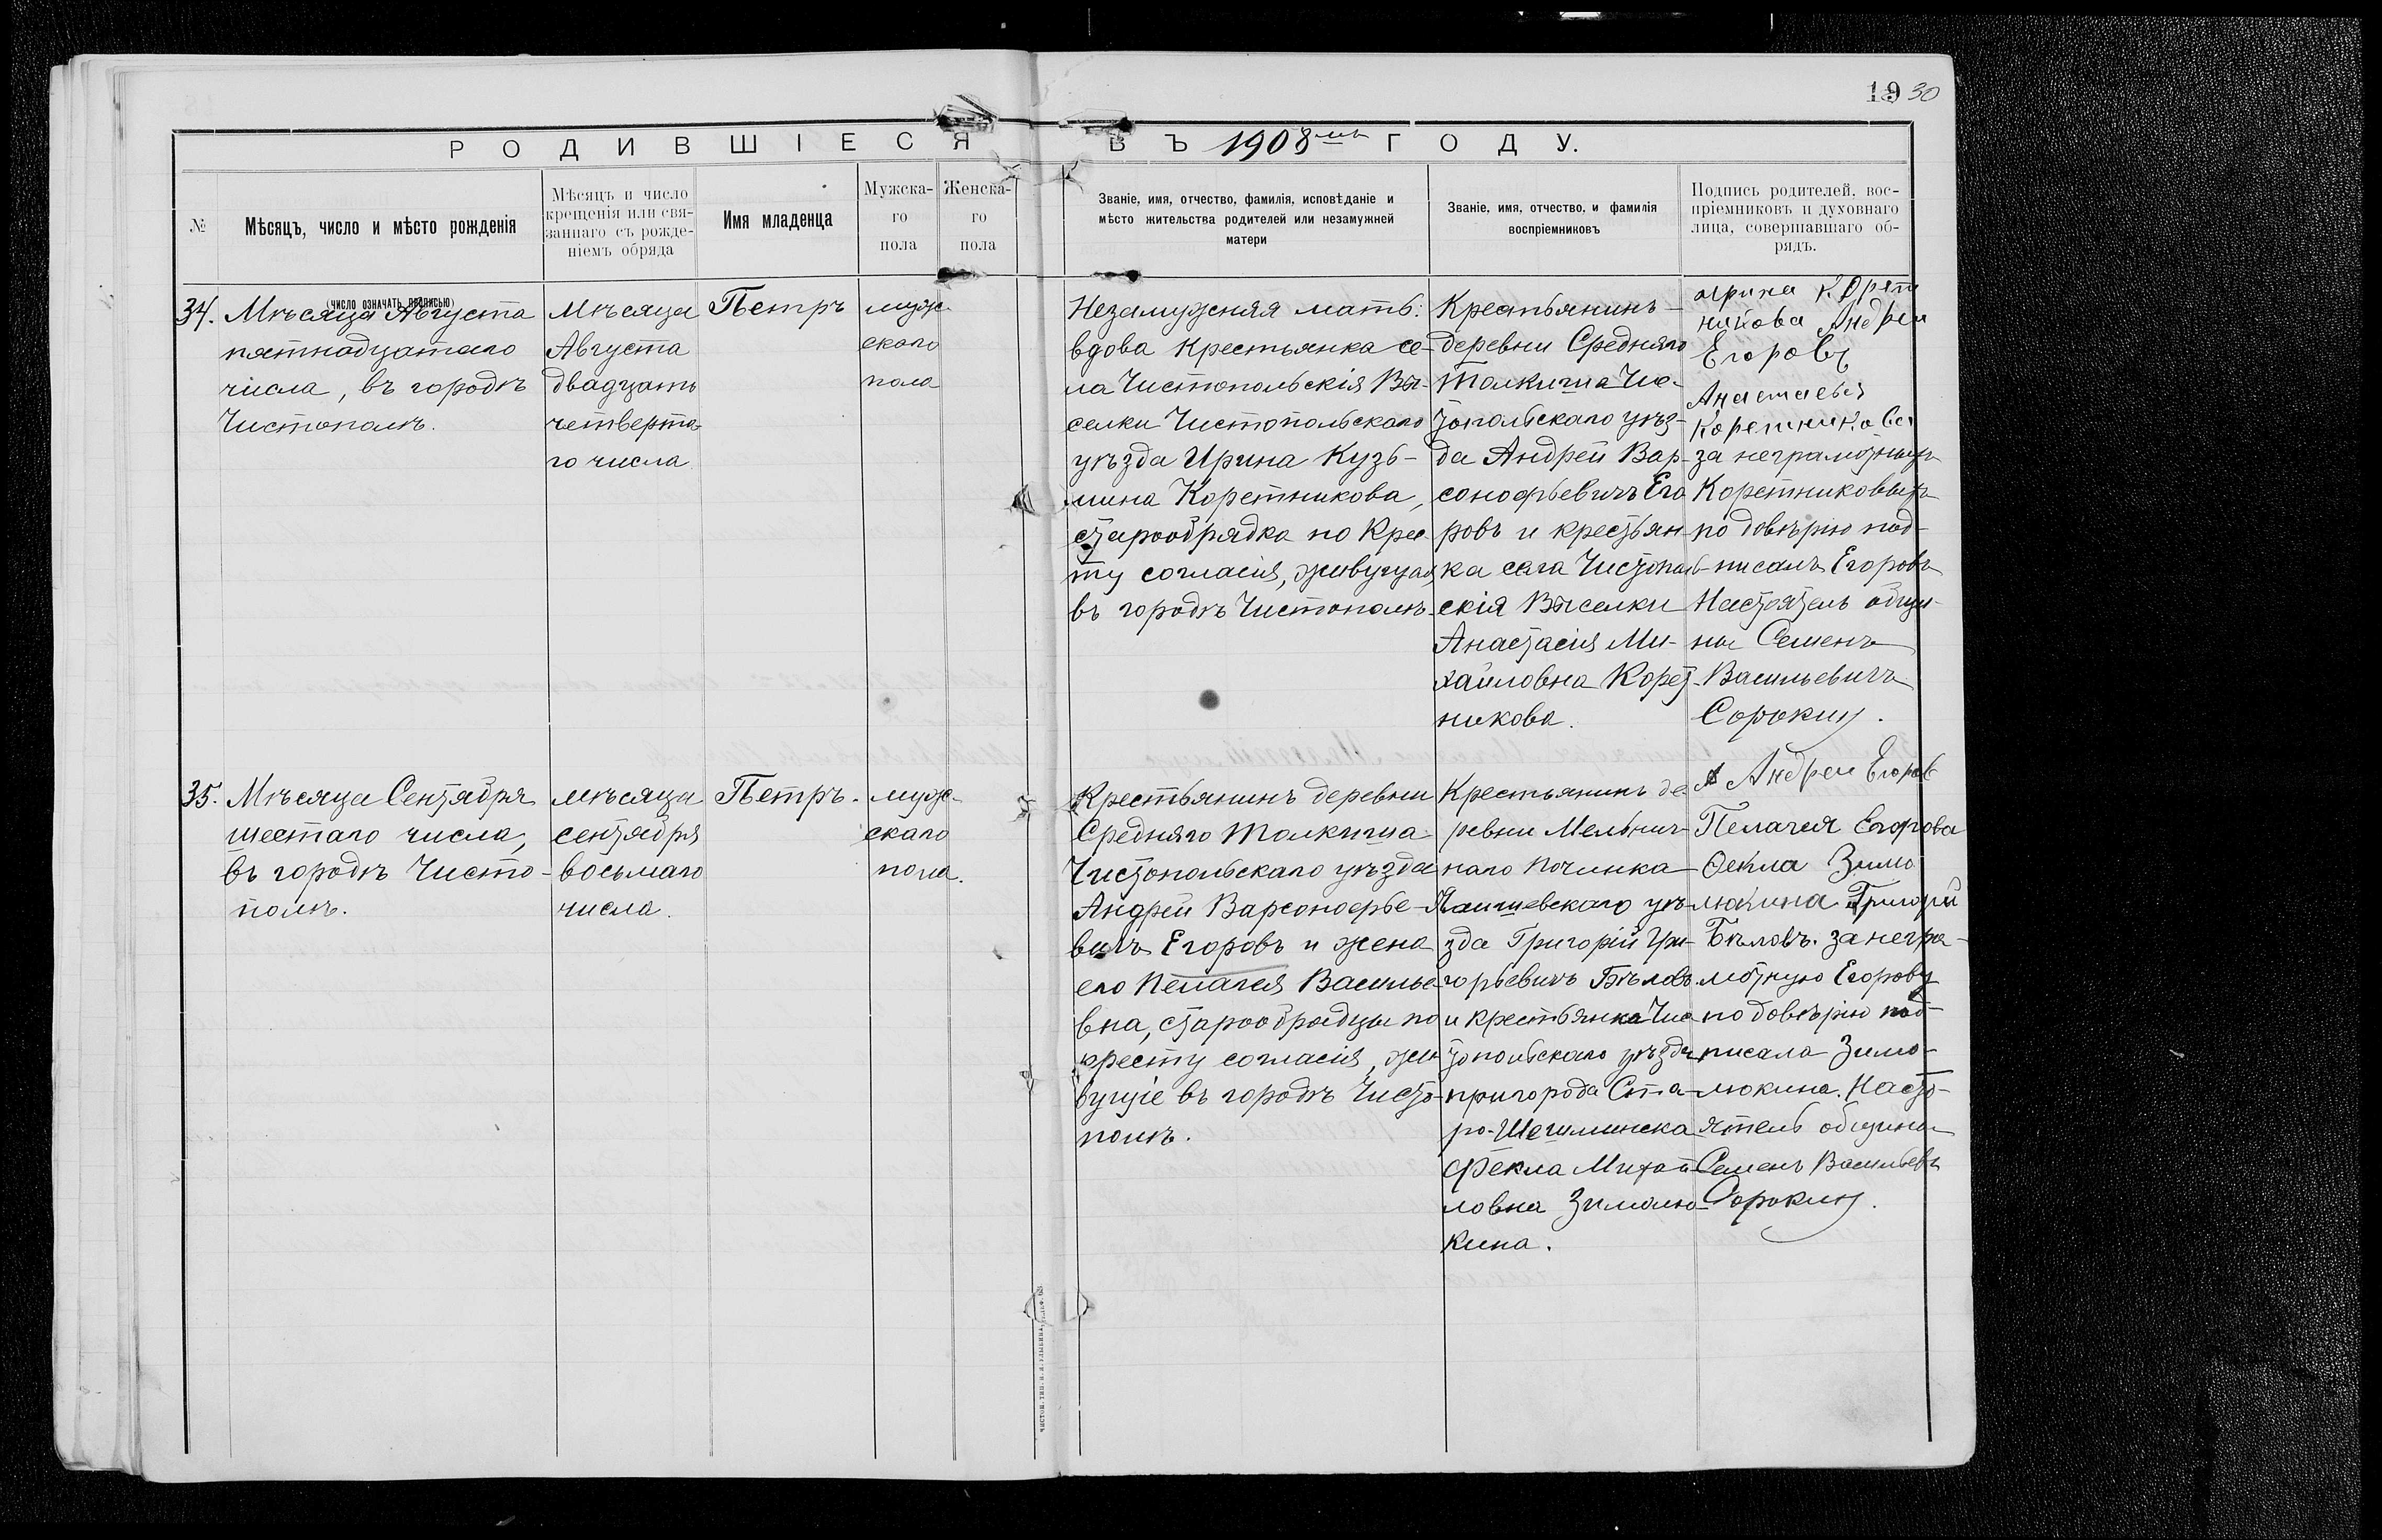 19 30
РОДИВШІЕСЯ ВЪ 1908мъ ГОДУ.
№
Мѣсяцъ, число и мѣсто рожденія
(число означать прописью)
Мѣсяцъ и число
крещенія или свя-
заннаго съ рожде-
ніемъ обряда
Имя младенца
Мужска-
го
пола
Женска-
го
пола
Званіе, имя, отчество, фамилія, исповѣданіе и
мѣсто жительства родителей или незамужней
матери
Званіе, имя, отчество, и фамилія
воспріемниковъ
Подпись родителей, вос-
пріемниковъ и духовнаго
лица, совершавшаго об-
рядъ.
34.
Мѣсяца Августа
пятнадцатаго
числа, въ городѣ
Чистополѣ.
Мѣсяца
Августа
двадцать
четверта-
го числа
Петръ
муж-
скаго
пола
Незамужняя мать:
вдова крестьянка се-
ла Чистопольскія Вы-
селки Чистопольскаго
уѣзда Ирина Кузь-
мина Коретникова,
старообрядка по Крес-
ту согласія, живущая
въ городѣ Чистополѣ.
Крестьянинъ
деревни Средняго
Толкиша Чис-
топольскаго уѣз-
да Андрей Вар-
сонофьевичъ Его
ровъ и крестьян-
ка села Чистополь-
скія Выселки
Анастасія Ми-
хайловна Корет-
никова.
Ирина Корет
никова Андреи
Егоровъ
Анастасья
Коретникова
за неграмотныхъ
Коретниковыхъ
по довѣрію под-
писалъ Егоровъ
Настоятель общи-
ны Семенъ
Васильевичъ
Сорокинъ.
35.
Мѣсяца Сентября
шестаго числа,
въ городѣ Чисто-
полѣ.
мѣсяца
сентября
восьмаго
числа.
Петръ.
муж-
скаго
пола.
Крестьянинъ деревни
Средняго Толкиша
Чистопольскаго уѣзда
Андрей Варсонофье-
вичъ Егоровъ и жена
его Пелагея Василье-
вна, старообрядцы по
кресту согласія, жи-
вущіе въ городѣ Чисто-
полѣ.
Крестьянинъ де-
ревни Мельнич-
наго Починка
Лаишевскаго уѣ-
зда Григорій Гри-
горьевичъ Бѣловъ
и крестьянка Чис-
топольскаго уѣзда
пригорода Ста-
ро-Шешминска
Фекла Михай-
ловна Зимолю-
кина.
Андреи Егоров
Пелагея Егорова
Фекла Зимо
люкина Григорій
Бѣловъ. за негра-
мотную Егорову
по довѣрію под-
писала Зимо-
люкина. Насто-
ятель общины
Семенъ Васильевъ
Сорокинъ.